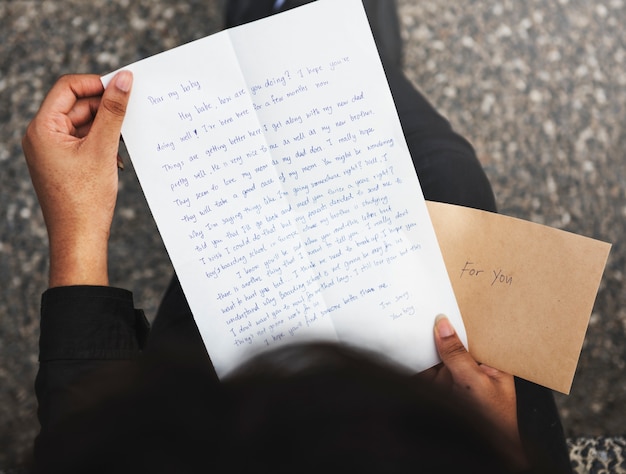 Dear my baby
Hey babe, how are you doing? I hope you're
doing well. I've been here for a few months now
Things are getting better here I get along with my new dad
pretty well. He is very nice to me as well as my new brother.
They seem to love my mom as my dad does. I really hope
they will take a good care of my mom. You might be wondering
why I'm saying things like I'm going somewhere, right? Well, I
told you that I'll go back and meet you twice a year, right?
I wish I could do that but my parents decided to send me to
boy's boarding school in where my brother is studying
I know you'll be sad when you read this letter but
there is another thing that I have to tell you. I really don't
want to hurt you but I think we need to break up. I hope you
understand why boarding school is not gonna be easy for us
I don't want you to wait for me that long. I still love you but this
things not gonna work
I hope you'll find someone better than me.
I'm sorry
For You